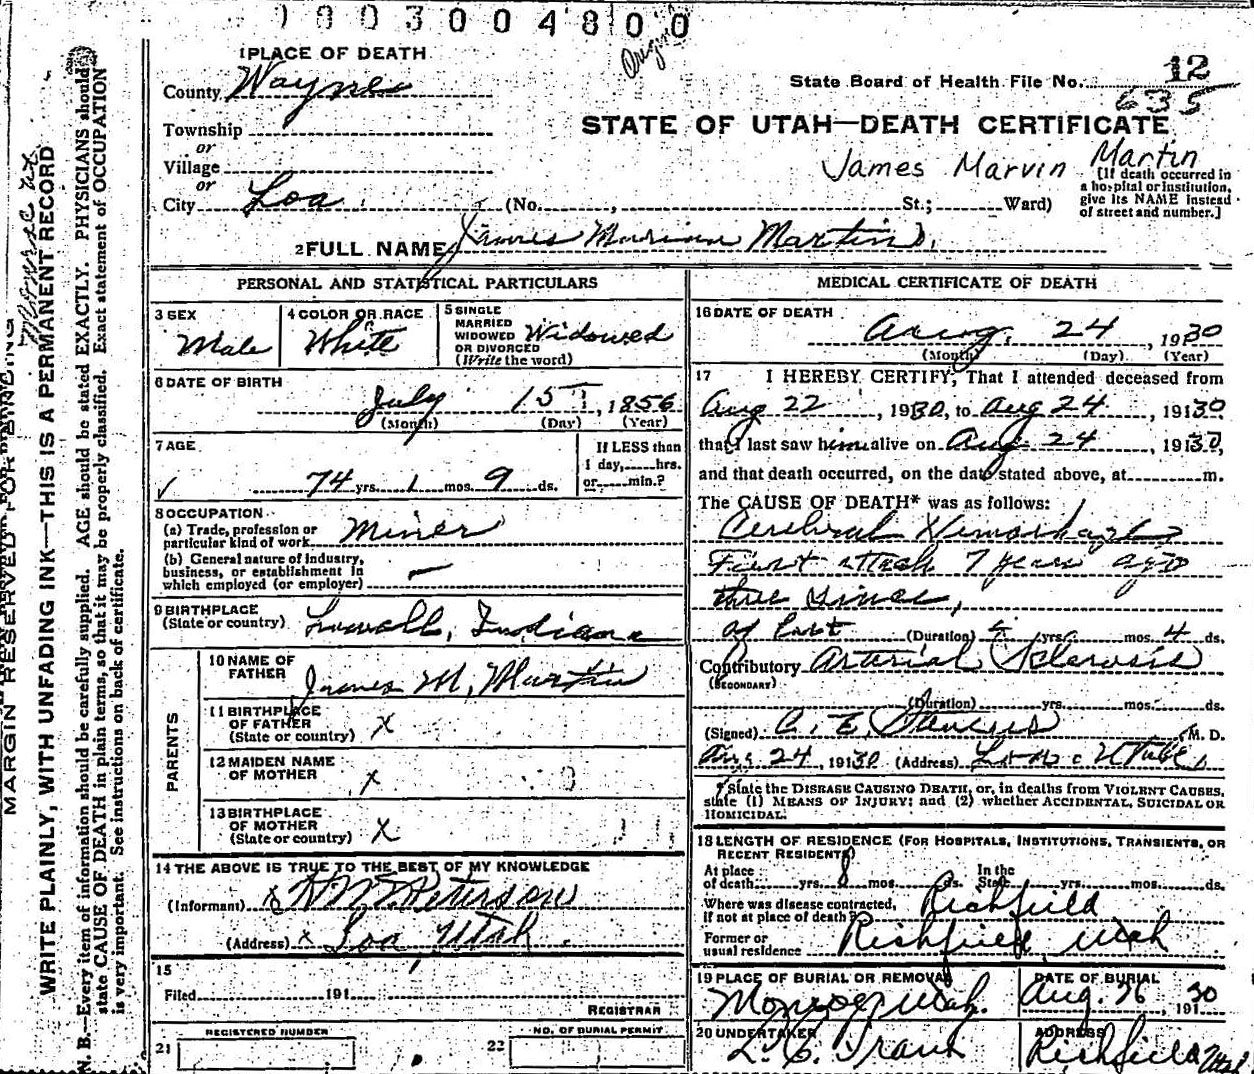 1003004800
Origin
1 PLACE OF DEATH
County Wayne
Township
or
Village
or
City Loa (No. , St.; Ward)
State Board of Health File No. 12
635
STATE OF UTAH—DEATH CERTIFICATE
James Marvin Martin
[If death occurred in
a hospital or institution,
give its NAME instead
of street and number.]
2 FULL NAME James Marion Martin
PERSONAL AND STATISTICAL PARTICULARS
3 SEX
Male
4 COLOR OR RACE
White
5 SINGLE
MARRIED
WIDOWED
OR DIVORCED
(Write the word)
Widowed
6 DATE OF BIRTH
July 15, 1856
(Month) (Day) (Year)
7 AGE
74 yrs. 1 mos. 9 ds.
If LESS than
1 day, hrs.
or min.?
8 OCCUPATION
(a) Trade, profession or
particular kind of work Miner
(b) General nature of industry,
business, or establishment in
which employed (or employer) —
9 BIRTHPLACE
(State or country) Lowell, Indiana
PARENTS
10 NAME OF
FATHER
James M. Martin
11 BIRTHPLACE
OF FATHER
(State or country) x
12 MAIDEN NAME
OF MOTHER x
13 BIRTHPLACE
OF MOTHER
(State or country) x
14 THE ABOVE IS TRUE TO THE BEST OF MY KNOWLEDGE
(Informant) Peterson
(Address) x Loa Utah
15
Filed 191
REGISTRAR
REGISTERED NUMBER
21
NO. OF BURIAL PERMIT
22
MEDICAL CERTIFICATE OF DEATH
16 DATE OF DEATH
Aug. 24, 1930
(Month) (Day) (Year)
17 I HEREBY CERTIFY, That I attended deceased from
Aug 22, 1930, to Aug 24, 19130,
that I last saw him alive on Aug 24 19130,
and that death occurred, on the date stated above, at m.
The CAUSE OF DEATH* was as follows:
Cerebral Hemorhage
First attack 7 years ago
three since,
of last (Duration) yrs. mos. 4 ds.
Contributory Arterial Sclerosis
(SECONDARY)
(Duration) yrs. mos. ds.
(Signed) C. E. M. D.
Aug 24, 19130 (Address) Utah
* State the DISEASE CAUSING DEATH, or, in deaths from VIOLENT CAUSES,
state (1) MEANS OF INJURY; and (2) whether ACCIDENTAL, SUICIDAL OR
HOMICIDAL.
18 LENGTH OF RESIDENCE (FOR HOSPITALS, INSTITUTIONS, TRANSIENTS, OR
RECENT RESIDENTS)
At place
of death yrs. 8 mos. ds. In the
State yrs. mos. ds.
Where was disease contracted,
if not at place of death? Richfield
Former or
usual residence Richfield, Utah
19 PLACE OF BURIAL OR REMOVAL
Monroe, Utah.
DATE OF BURIAL
Aug. 26 191 30
20 UNDERTAKER
ADDRESS
Richfield Utah
MARGIN RESERVED FOR BINDING
WRITE PLAINLY, WITH UNFADING INK—THIS IS A PERMANENT RECORD
N. B.—Every item of information should be carefully supplied. AGE should be stated EXACTLY. PHYSICIANS should
state CAUSE OF DEATH in plain terms, so that it may be properly classified. Exact statement of OCCUPATION
is very important. See instructions on back of certificate.